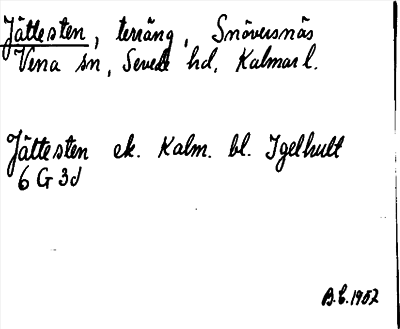 Jättesten, terräng, Snäversnäs
Vena sn, Sevede hd, Kalmar l.
Jättesten ek. Kalm. bl. Igelhult
6 G 3d
B.E. 1952